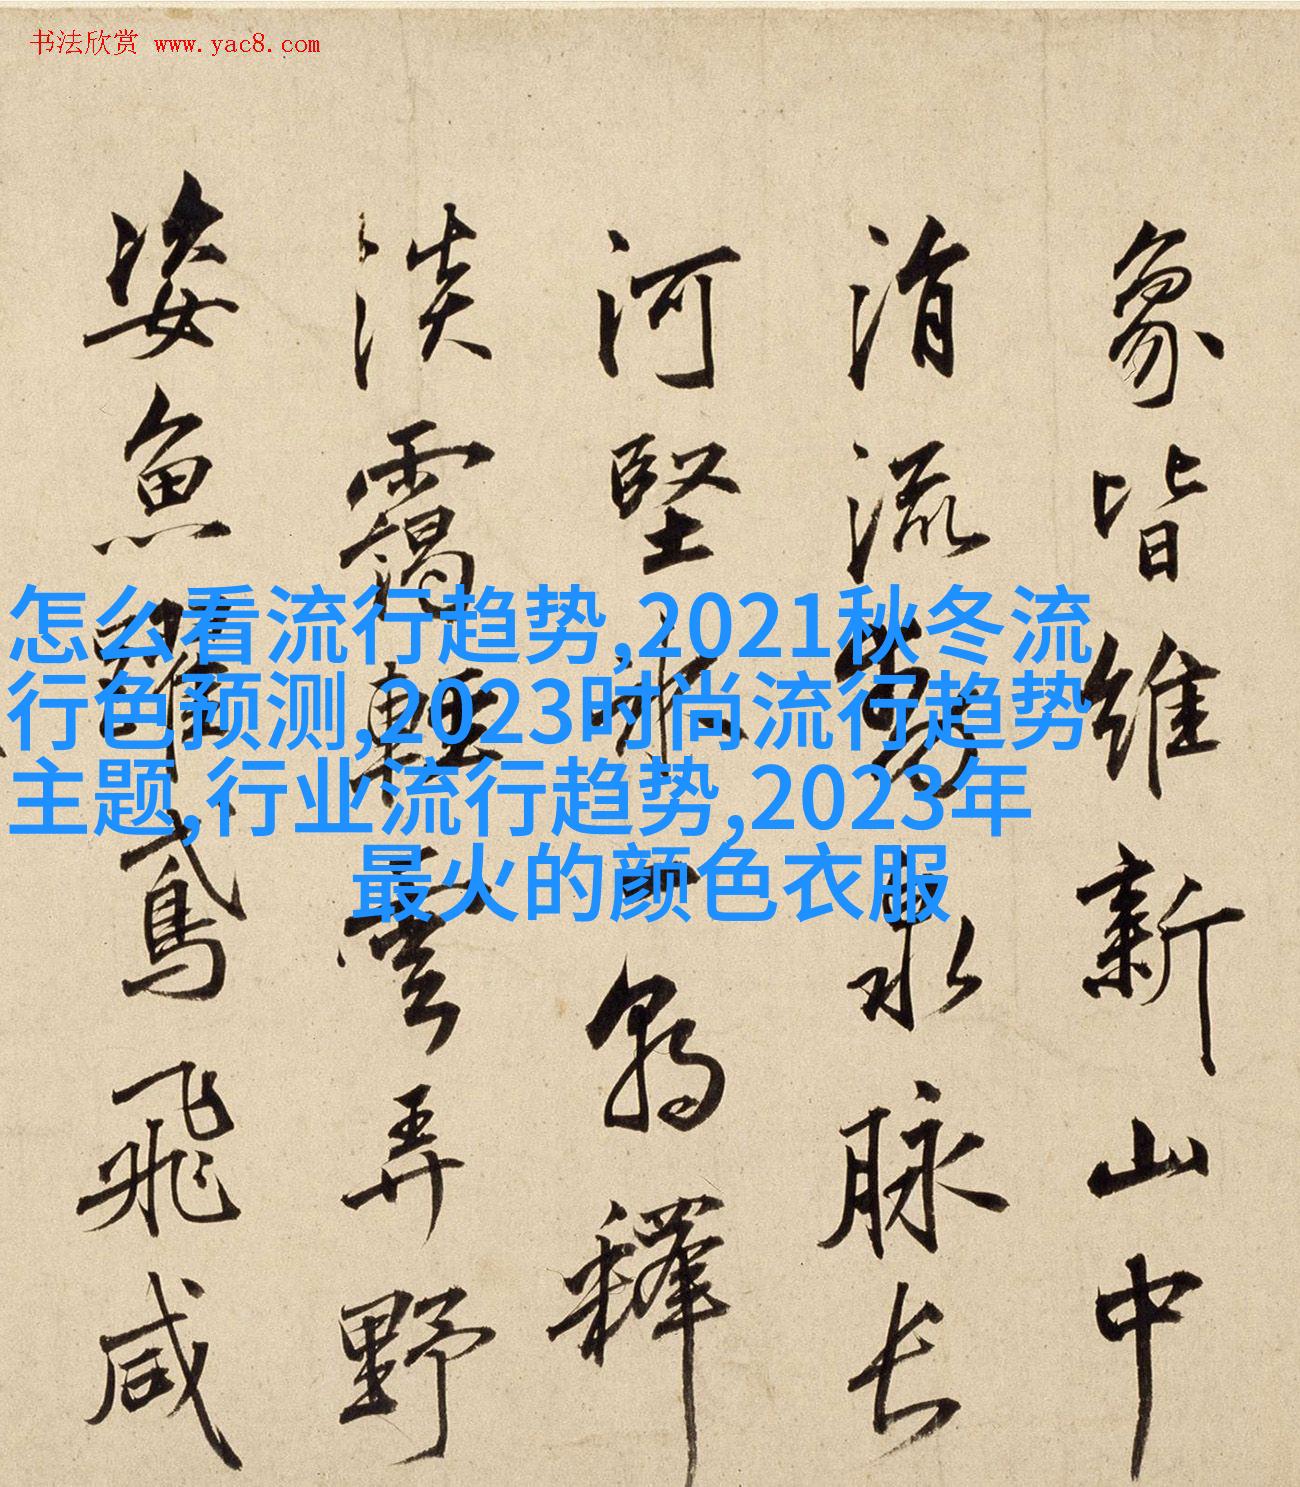 书法欣赏 www.yac8.com
象皆維新山中
涓流萬泉脉长
河堅冰一釋
淡靄輕雲弄野
姿魚躍鳶飛咸
怎么看流行趋势,2021秋冬流
行色预测,2023时尚流行趋势
主题,行业流行趋势,2023年
最火的颜色衣服